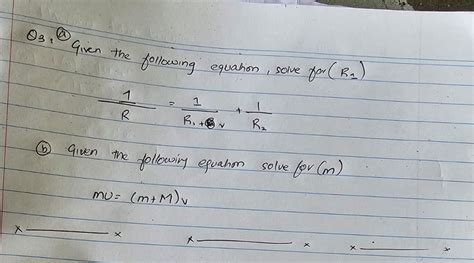 Q3. (a) Given the following equation, solve for (R1)
1/R = 1/R1+ v + 1/R2
(b) Given the following equation solve for (m)
mu = (m+M)v
x ——— x x ——— x x ——— x